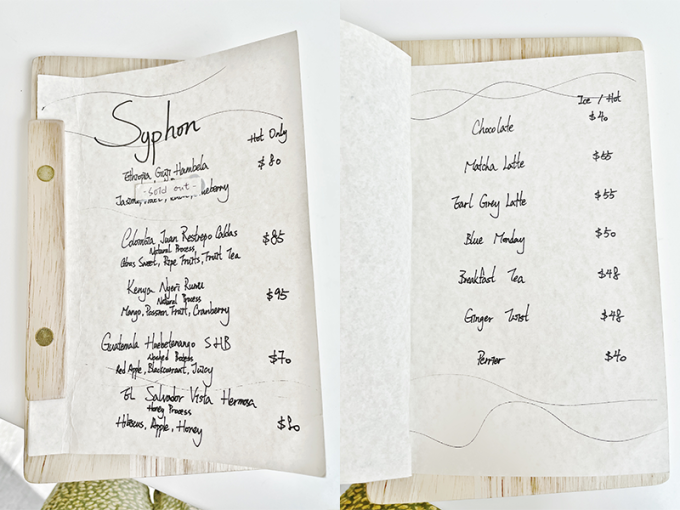 Syphon
Hot Only
Ethiopia Guji Hambela $80
- Sold out -
Colombia Juan Restrepo Caldas $85
Natural Process
Citrus Sweet, Ripe Fruits, Fruit Tea
Kenya Nyeri Runei $95
Natural Process
Mango, Passion Fruit, Cranberry
Guatemala Huehetenango SHB $70
Washed Process
Red Apple, Blackcurrant, Juicy
EL Salvador Vista Hermosa
Honey Process
Hibiscus, Apple, Honey
Ice / Hot
Chocolate $40
Matcha Latte $55
Earl Grey Latte $55
Blue Monday $50
Breakfast Tea $48
Ginger Twist $48
Perrier $40